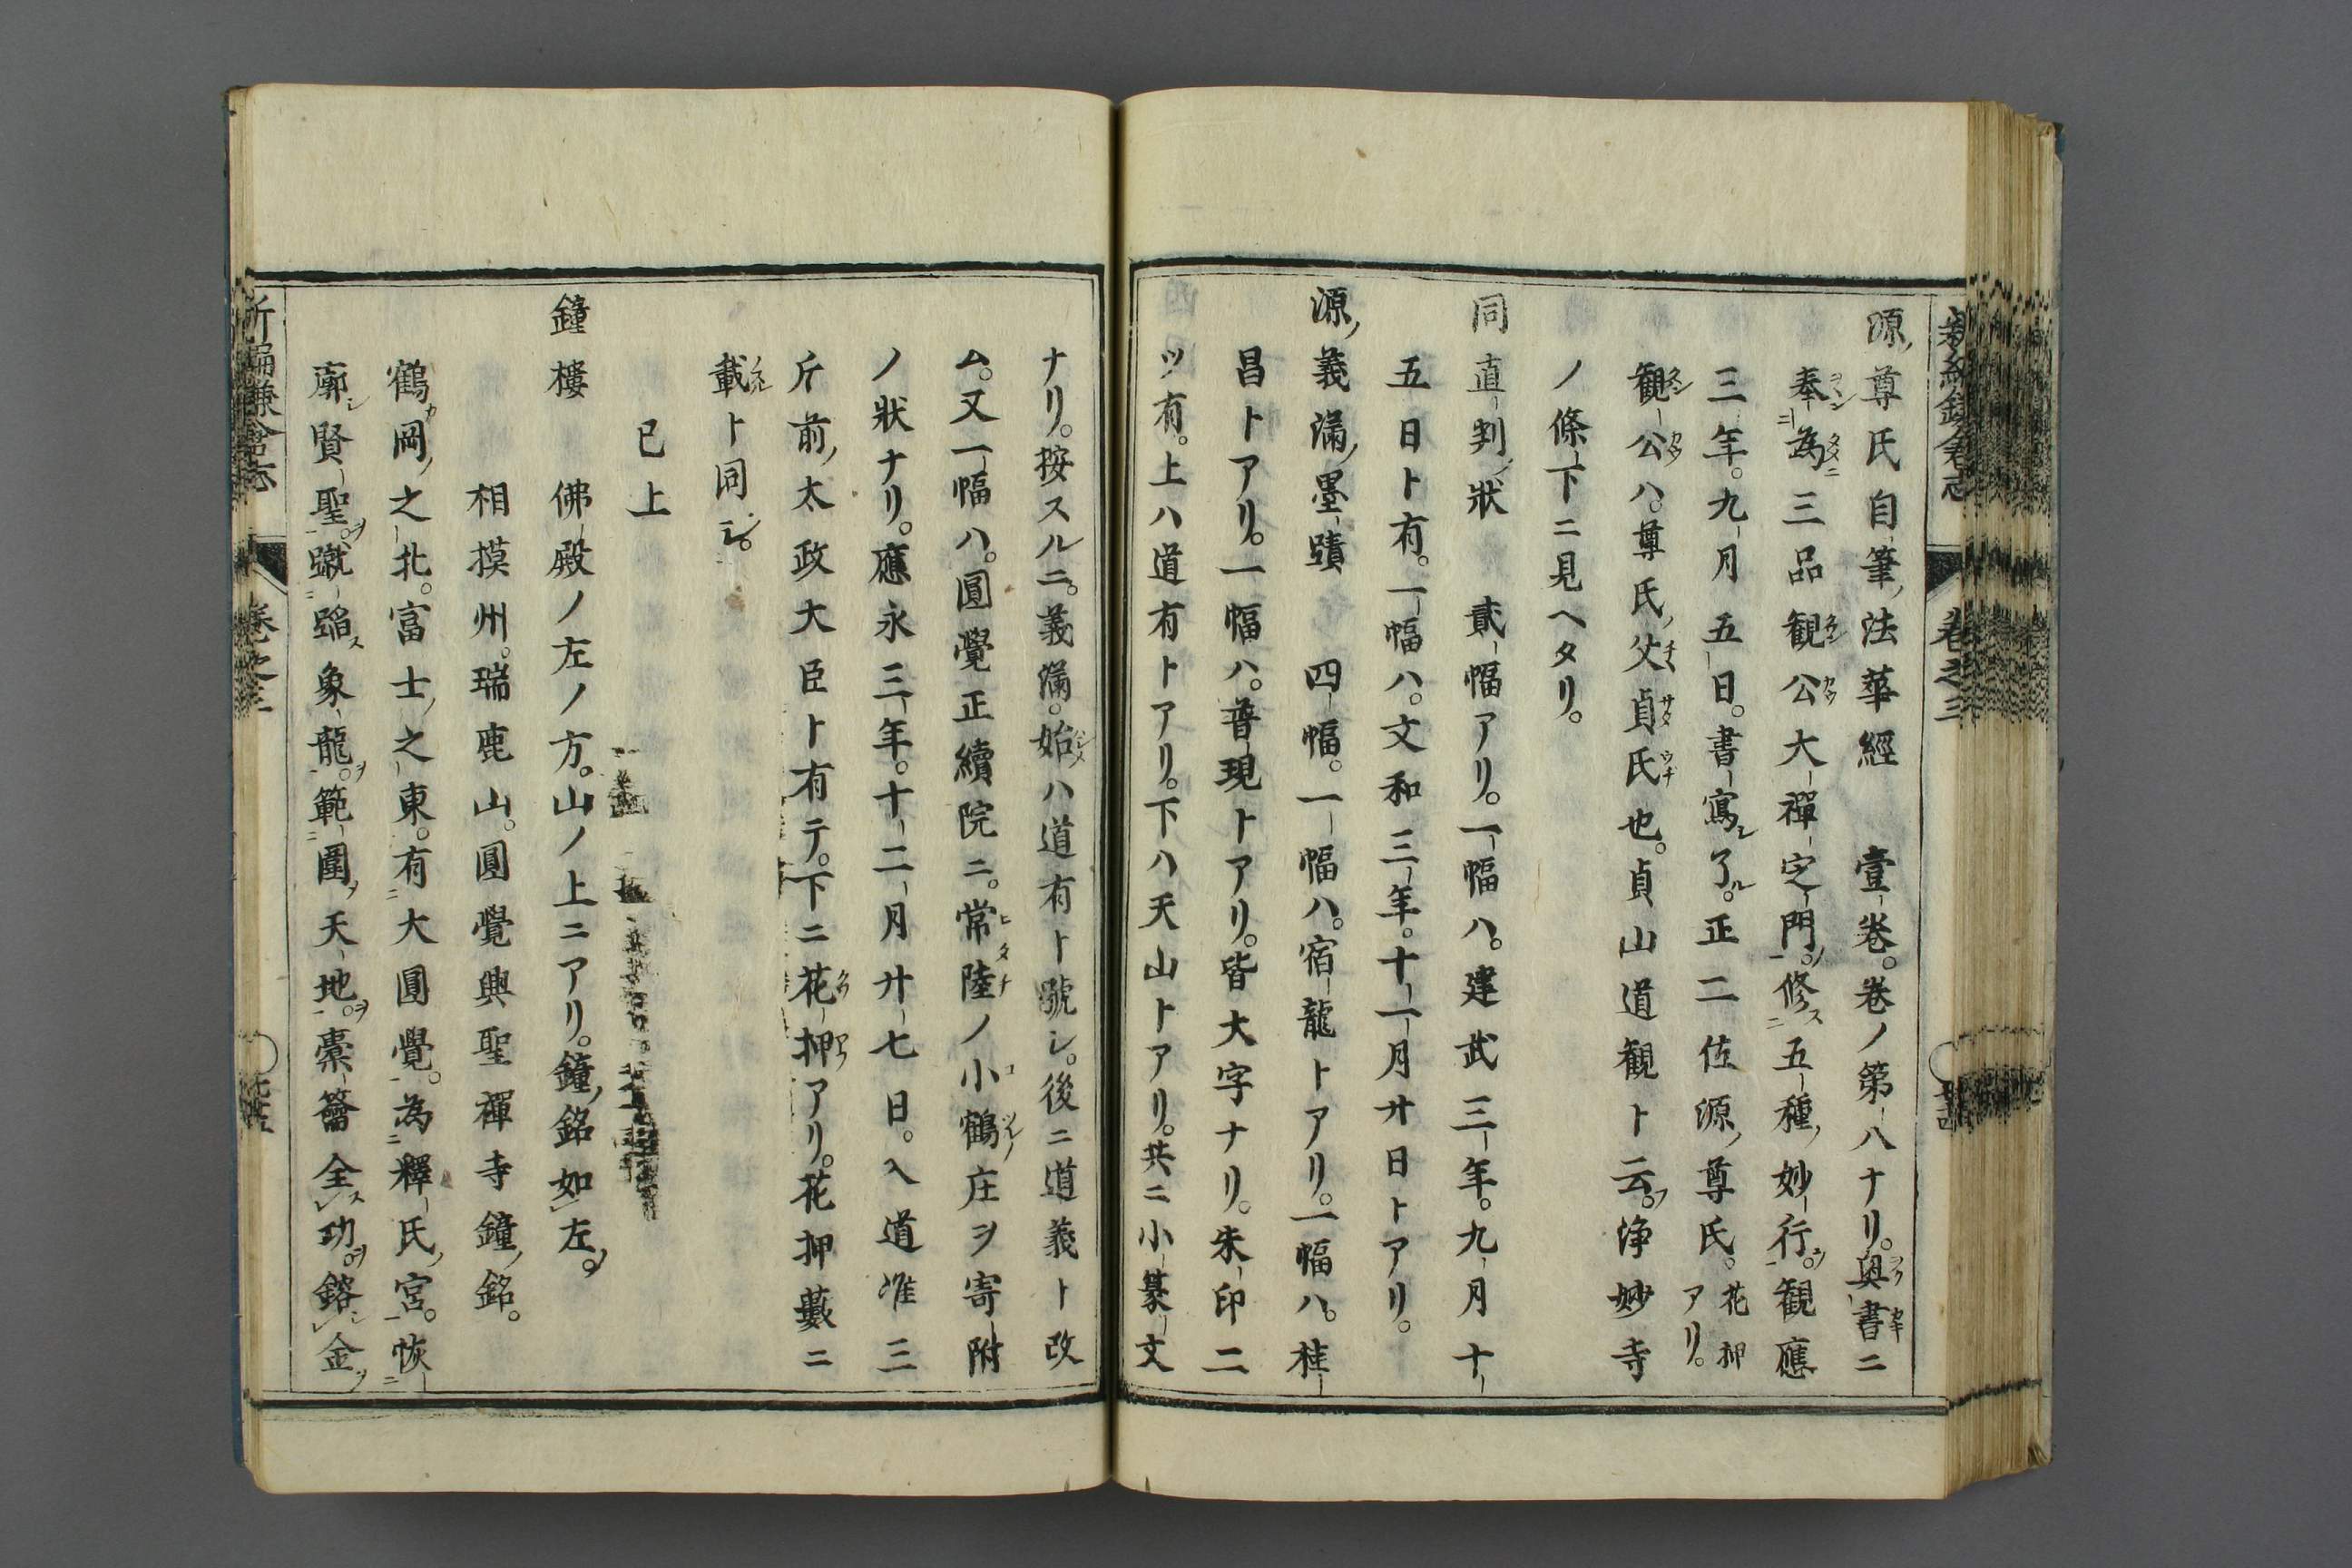 新編鎌倉志 卷之三
源尊氏自筆法華經 壹卷。卷ノ第八ナリ。奥書ニ
奉為三品観公大禪定門。修五種妙行。観應
三年。九月五日。書寫了。正二位源尊氏。花押アリ。
観公ハ。尊氏ノ父貞氏也。貞山道観ト云。浄妙寺
ノ條下ニ見ヘタリ。
同直判狀 貳幅アリ。一幅ハ。建武三年。九月十
五日ト有。一幅ハ。文和三年。十一月廿日トアリ。
源義満墨蹟 四幅。一幅ハ。宿龍トアリ。一幅ハ。桂
昌トアリ。一幅ハ。普現トアリ。皆大字ナリ。朱印二
ツ有。上ハ道有トアリ。下ハ天山トアリ。共ニ小篆文
ナリ。按スルニ。義満。始ハ道有ト號シ。後ニ道義ト改
ム。又一幅ハ。圓覺正續院ニ。常陸ノ小鶴庄ヲ寄附
ノ狀ナリ。應永三年。十二月廿七日。入道准三
后前太政大臣ト有テ。下ニ花押アリ。花押藪ニ
載ト同シ。
已上
鐘樓 佛殿ノ左ノ方。山ノ上ニアリ。鐘銘如左。
相摸州。瑞鹿山。圓覺興聖禪寺鐘銘。
鶴岡之北。富士之東。有大圓覺。為釋氏宮。恢
廓賢聖。蹴踏象龍。範圍天地。橐籥全功。鎔金
新編鎌倉志 卷之三